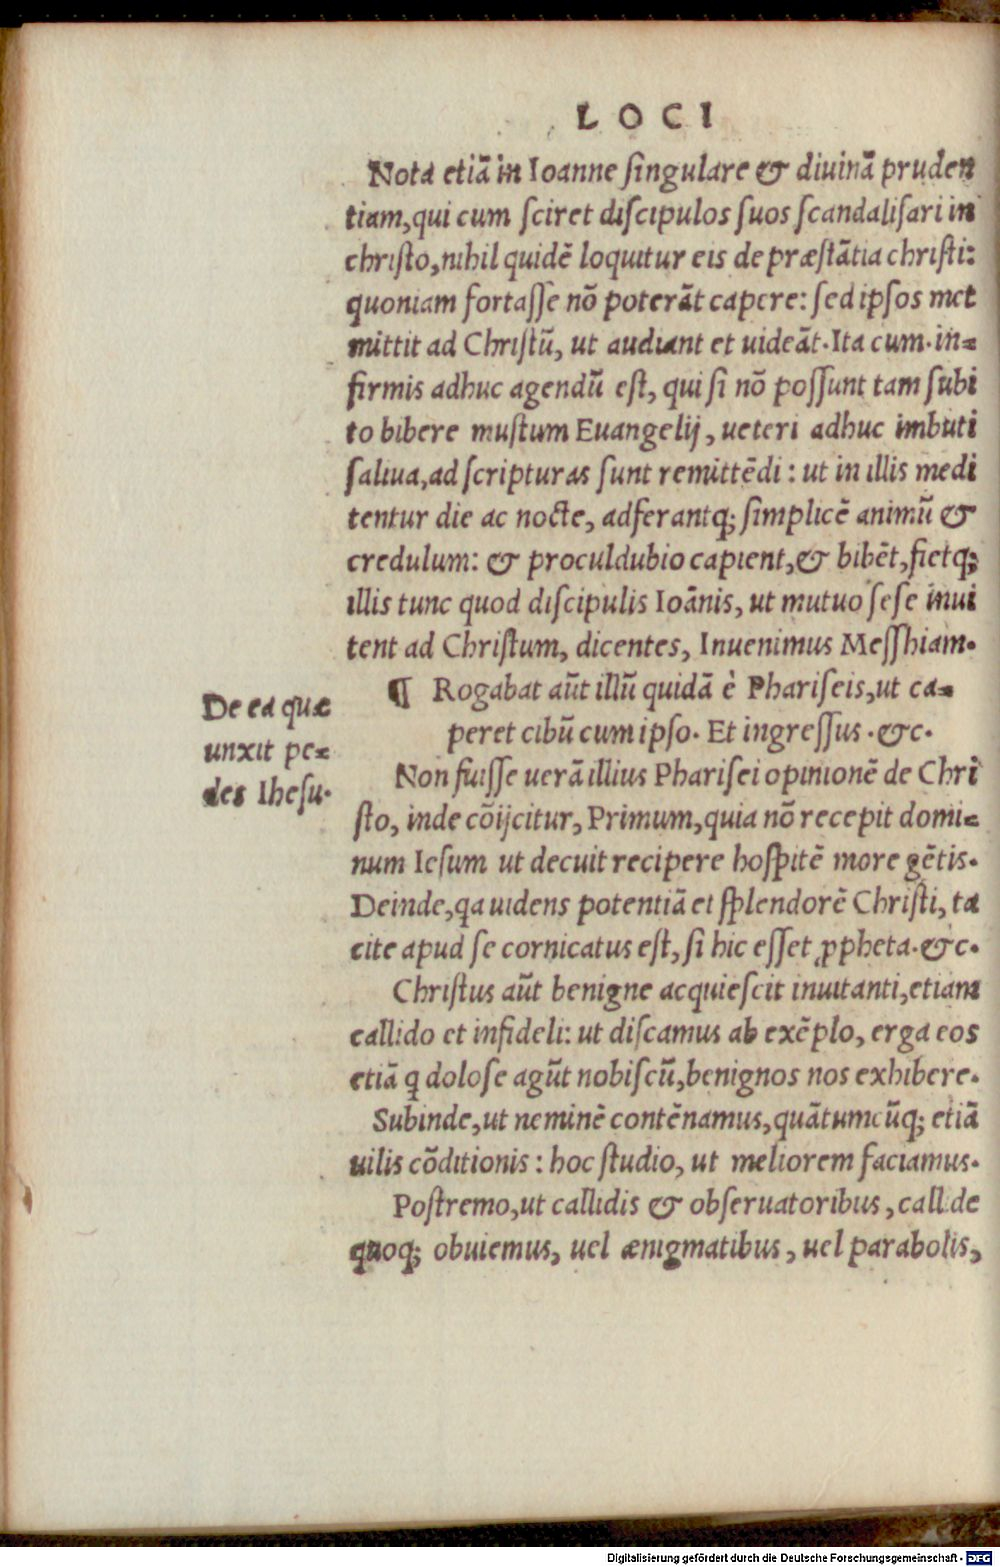 LOCI
Nota etiã in Ioanne singulare & diuinã pruden
tiam, qui cum sciret discipulos suos scandalisari in
christo, nihil quidẽ loquitur eis de præstãtia christi:
quoniam fortasse nõ poterãt capere: sed ipsos met
mittit ad Christũ, ut audiant et uideãt. Ita cum in-
firmis adhuc agendũ est, qui si nõ possunt tam subi
to bibere mustum Euangelij, ueteri adhuc imbuti
saliua, ad scripturas sunt remittẽdi: ut in illis medi
tentur die ac nocte, adferantq; simplicẽ animũ &
credulum: & proculdubio capient, & bibẽt, fietq;
illis tunc quod discipulis Ioãnis, ut mutuo sese inui
tent ad Christum, dicentes, Inuenimus Messhiam.
De ea quæ
unxit pe-
des Ihesu.
¶ Rogabat aũt illũ quidã è Phariseis, ut ca-
peret cibũ cum ipso. Et ingressus. &c.
Non fuisse uerã illius Pharisei opinionẽ de Chri
sto, inde cõijcitur, Primum, quia nõ recepit domi-
num Iesum ut decuit recipere hospitẽ more gẽtis.
Deinde, qa uidens potentiã et splendorẽ Christi, ta
cite apud se cornicatus est, si hic esset ꝓpheta. &c.
Christus aũt benigne acquiescit inuitanti, etiam
callido et infideli: ut discamus ab exẽplo, erga eos
etiã q dolose agũt nobiscũ, benignos nos exhibere.
Subinde, ut neminẽ contẽnamus, quãtumcũq; etiã
uilis cõditionis: hoc studio, ut meliorem faciamus.
Postremo, ut callidis & obseruatoribus, callide
quoq; obuiemus, uel ænigmatibus, uel parabolis,
Digitalisierung gefördert durch die Deutsche Forschungsgemeinschaft - DFG